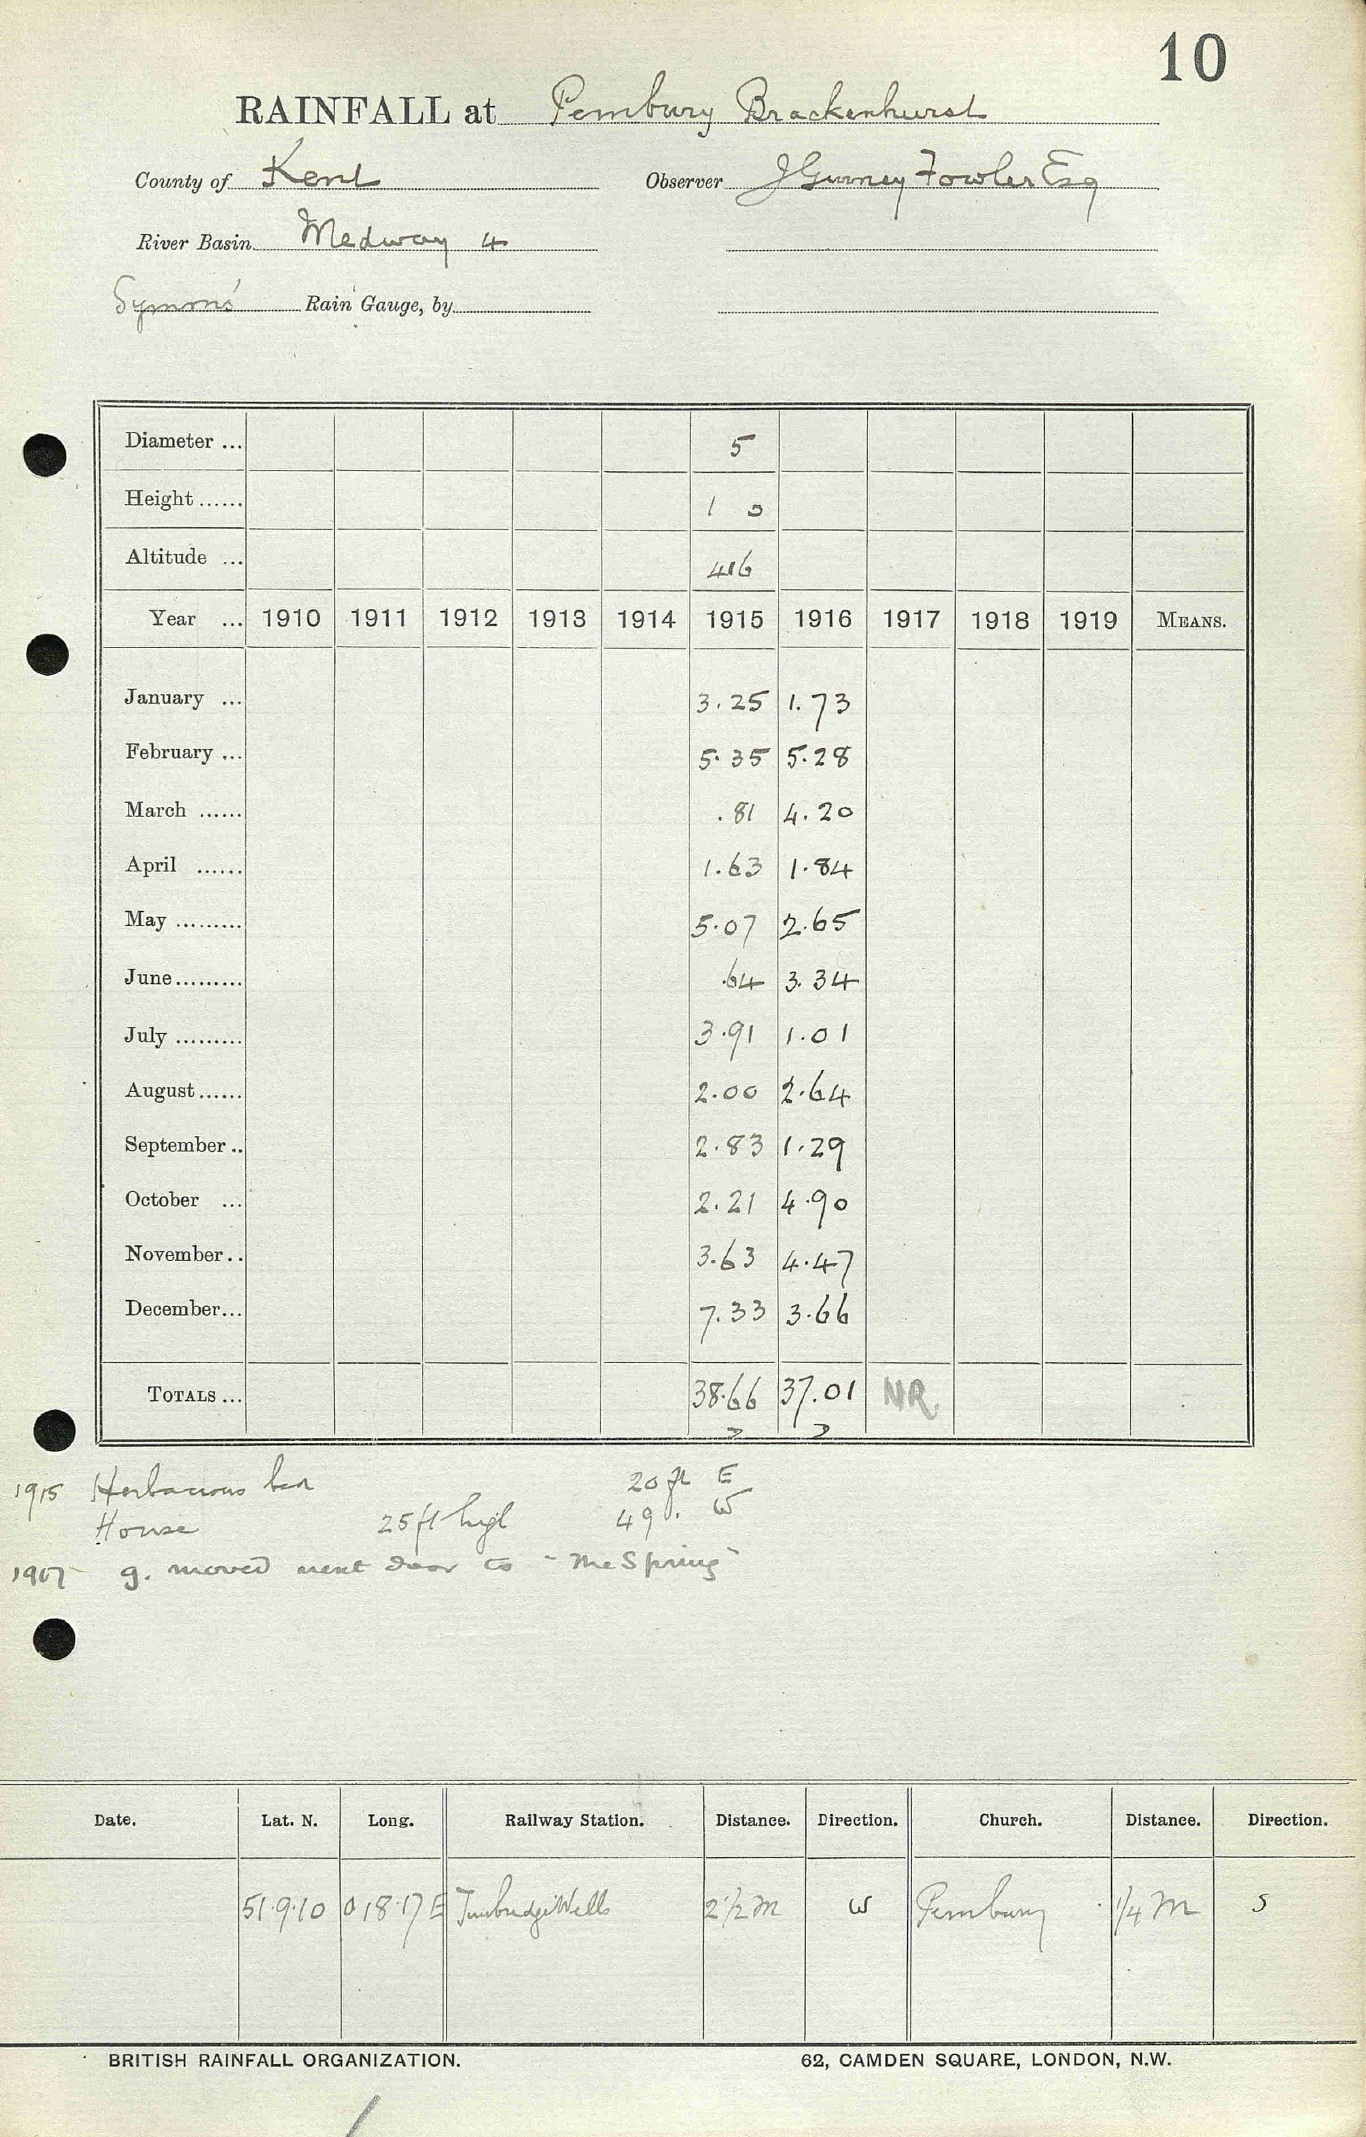 10
RAINFALL at Pembury Brackenhurst
County of Kent Observer J Gurney Fowler Esq
River Basin Medway 4
Symons' Rain Gauge, by
Diameter ... 5
Height ...... 1 0
Altitude ... 416
Year ... 1910 1911 1912 1913 1914 1915 1916 1917 1918 1919 MEANS.
January ... 3.25 1.73
February ... 5.35 5.28
March ...... .81 4.20
April ...... 1.63 1.84
May ......... 5.07 2.65
June ......... .64 3.34
July ......... 3.91 1.01
August ...... 2.00 2.64
September .. 2.83 1.29
October ... 2.21 4.90
November .. 3.63 4.47
December ... 7.33 3.66
TOTALS ... 38.66 37.01 NR.
1915 Herbaceous 20 ft E
House 25 ft high 49 . W
g. moved next door to "The Spring"
Date. Lat. N. Long. Railway Station. Distance. Direction. Church. Distance. Direction.
51.9.10 0 18.17 E Tunbridge Wells 2 1/2 M W Pembury 1/4 M S
BRITISH RAINFALL ORGANIZATION. 62, CAMDEN SQUARE, LONDON, N.W.